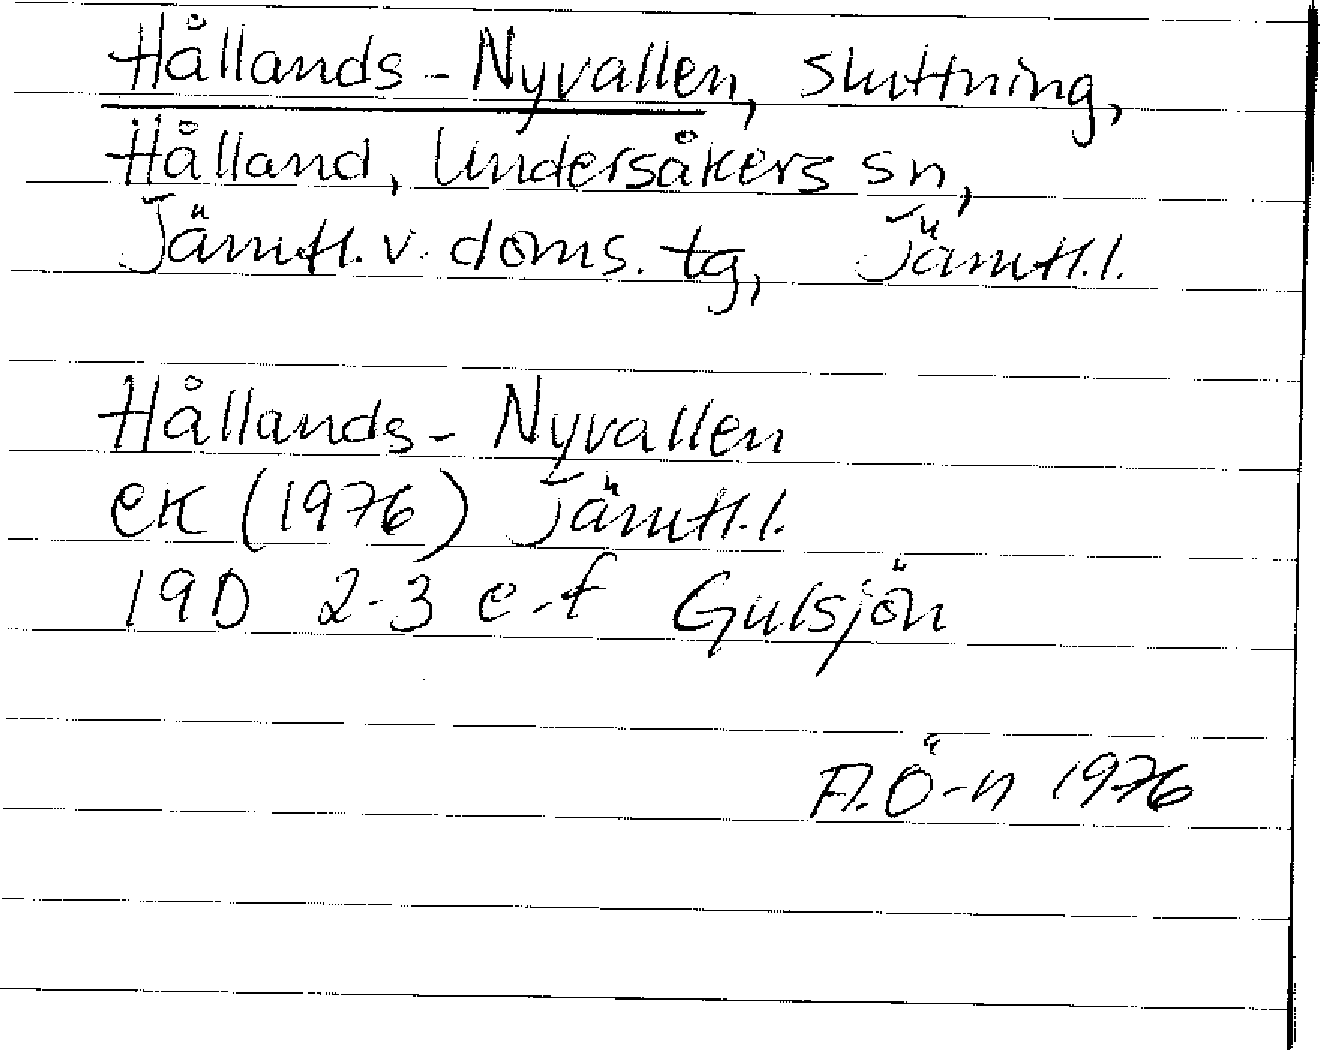 Hållands-Nyvallen, sluttning,
Hålland, Undersåkers sn,
Jämtl. v. doms. tg, Jämtl. l.
Hållands-Nyvallen
ek (1976) Jämtl. l.
19D 2-3 e-f Gulsjön
A. Ö-n 1976